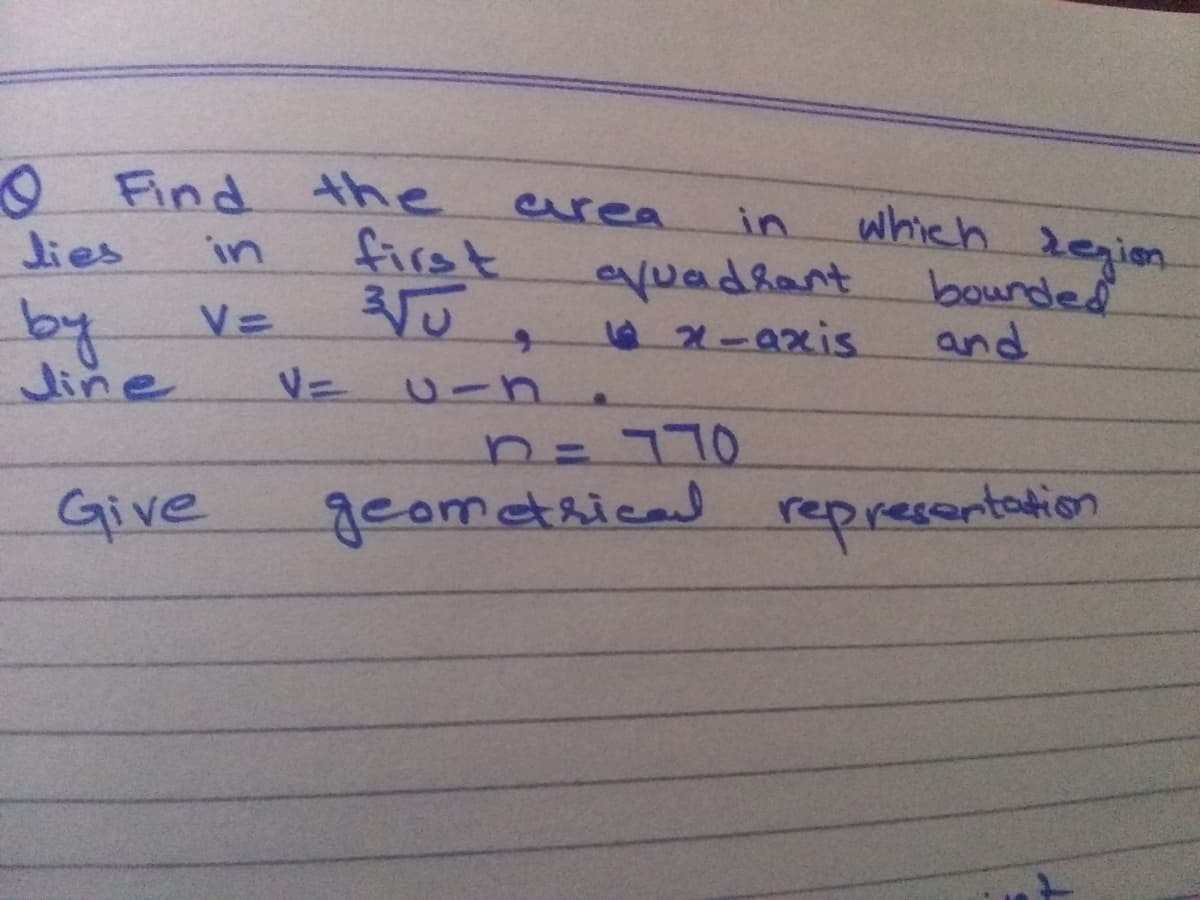 Q Find the area in which region
lies in first quadrant bounded
by v = ∛u , x-axis and
line v = u-n .
n = 770
Give geometrical representation